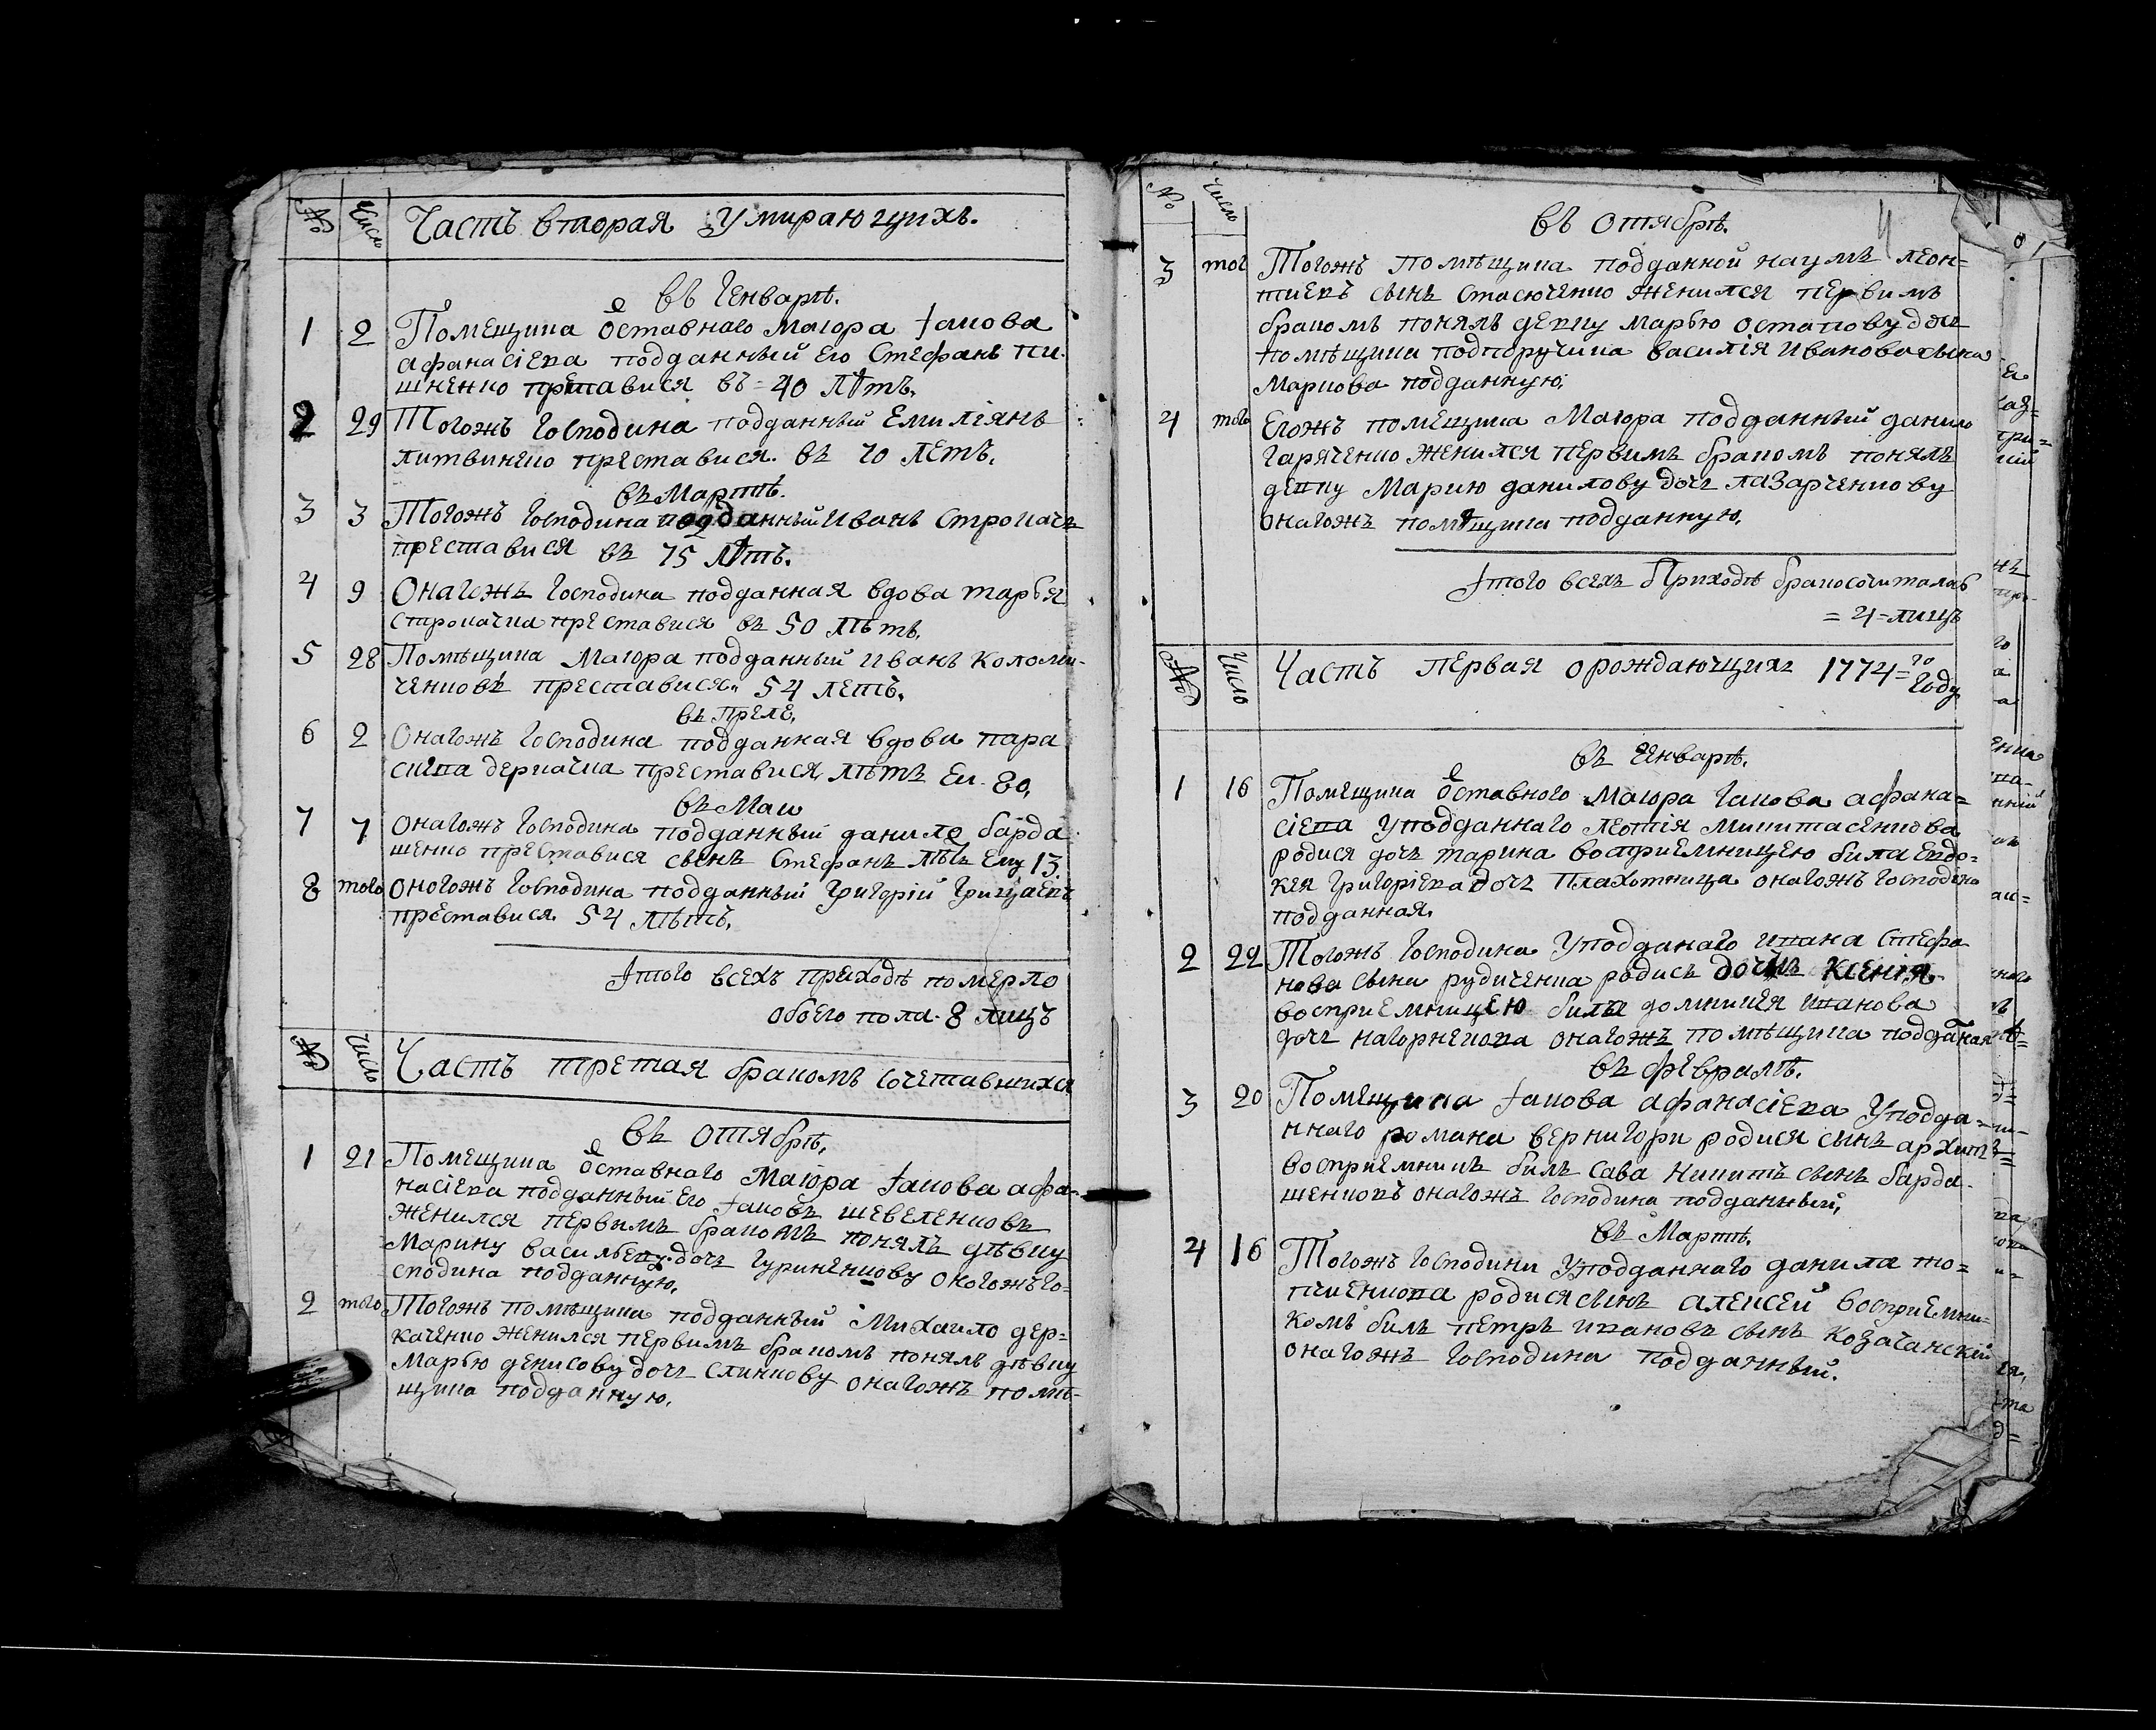 № Число Часть вторая умирающихъ.
въ Генварѣ.
1 2 Помещика Ѿставного Маіора Іакова
афанасіева подданный его Стефанъ пи-
шненко преставися въ=40 Лѣтъ.
2 29 Тогожъ Господина подданный Емиліянъ
литвиненко преставися. въ 70 летъ.
въ Мартѣ.
3 3 Тогожъ Господина подданный Иванъ Строкачъ
преставися въ 75 Лѣтъ.
4 9 Онагожъ Господина подданная вдова марья
строкачка преставися въ 50 лѣтъ.
5 28 Помѣщика Маіора подданный Иванъ Коломи-
ченковъ преставися. 54 летъ.
въ Прелѣ.
6 2 Онагожъ Господина подданная вдова пара
скева деркачка преставися лѣтъ Ей. 80.
въ Маи
7 7 Онагожъ Господина подданный данило барда
шенко преставися сынъ Стефанъ лѣтъ Ему 13.
8 того Оногожъ Господина подданный Григорій Грицаевъ
преставися 54 лѣтъ.
Ітого всехъ приходѣ померло
обоего пола. 8 лицъ
№ Число Часть третая бракомъ сочетавшихся
въ Октябрѣ.
1 21 Помещика Ѿставного Маіора Іакова афа-
насіева подданный его Іаковъ шевеленковъ
женился первимъ бракомъ понялъ дѣвку
Марину Васильеву дочъ гуриненкову оногожъ го-
сподина подданную.
2 того Тогожъ помѣщика подданный Михаило дер=
каченко женился первимъ бракомъ понялъ дѣвку
Марью денисову дочъ слинкову онагожъ помѣ-
щика подданную.
№ Число
въ Октябрѣ.
3 того Тогожъ помѣщика подданной наумъ леон=
тиевъ сынъ Стасюченко женился первимъ
бракомъ понялъ девку Марью остапову дочъ
помѣщика подпоручика василія Иванова сына
Маркова подданную.
4 того Егожъ помещика Маіора подданный данило
Гаряченко женился первимъ бракомъ понялъ
девку Марию данилову дочъ лазарченкову
онагожъ помѣщика подданную.
Ітого всехъ бприходѣ бракосочиталось
=4=лицъ
№ Число Часть первая о рождающихъ 1774=го году
въ Генварѣ.
1 16 Помещика Ѿставного Маіора Іакова афана=
сіева Уподданнаго леонтія Микитасенкова
родися дочъ марина восприемницею била Евдо=
кея Григоріева дочъ Плахотница онагожъ Господина
подданная.
2 22 Тогожъ Господина Уподданаго ивана Стефа
нова сына рудиченка родись дочъ Ксенія
восприемницею била домникія иванова
дочъ нагорнекова онагожъ помѣщика подданая
въ февралѣ.
3 20 Помещика Іакова афанасіева Уподда-
ннаго романа вернигори родися сынъ архипъ
восприемникъ билъ Сава Никитъ сынъ барда-
шенковъ онагожъ Господина подданный.
въ Мартѣ.
4 16 Тогожъ Господина Уподданнаго данила то=
пчиенкова родися сынъ алексей восприемни-
комъ билъ петръ ивановъ сынъ Козачанскій
онагожъ Господина подданный.